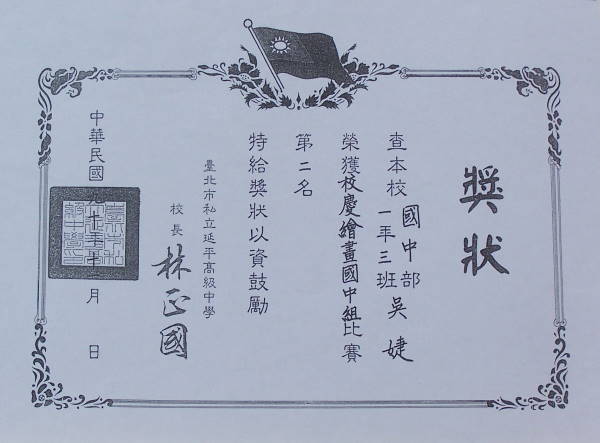 獎狀
查本校國中部一年三班吳婕
榮獲校慶繪畫國中組比賽
第二名
特給獎狀以資鼓勵
臺北市私立延平高級中學
校長 林正國
中華民國九十年 月 日